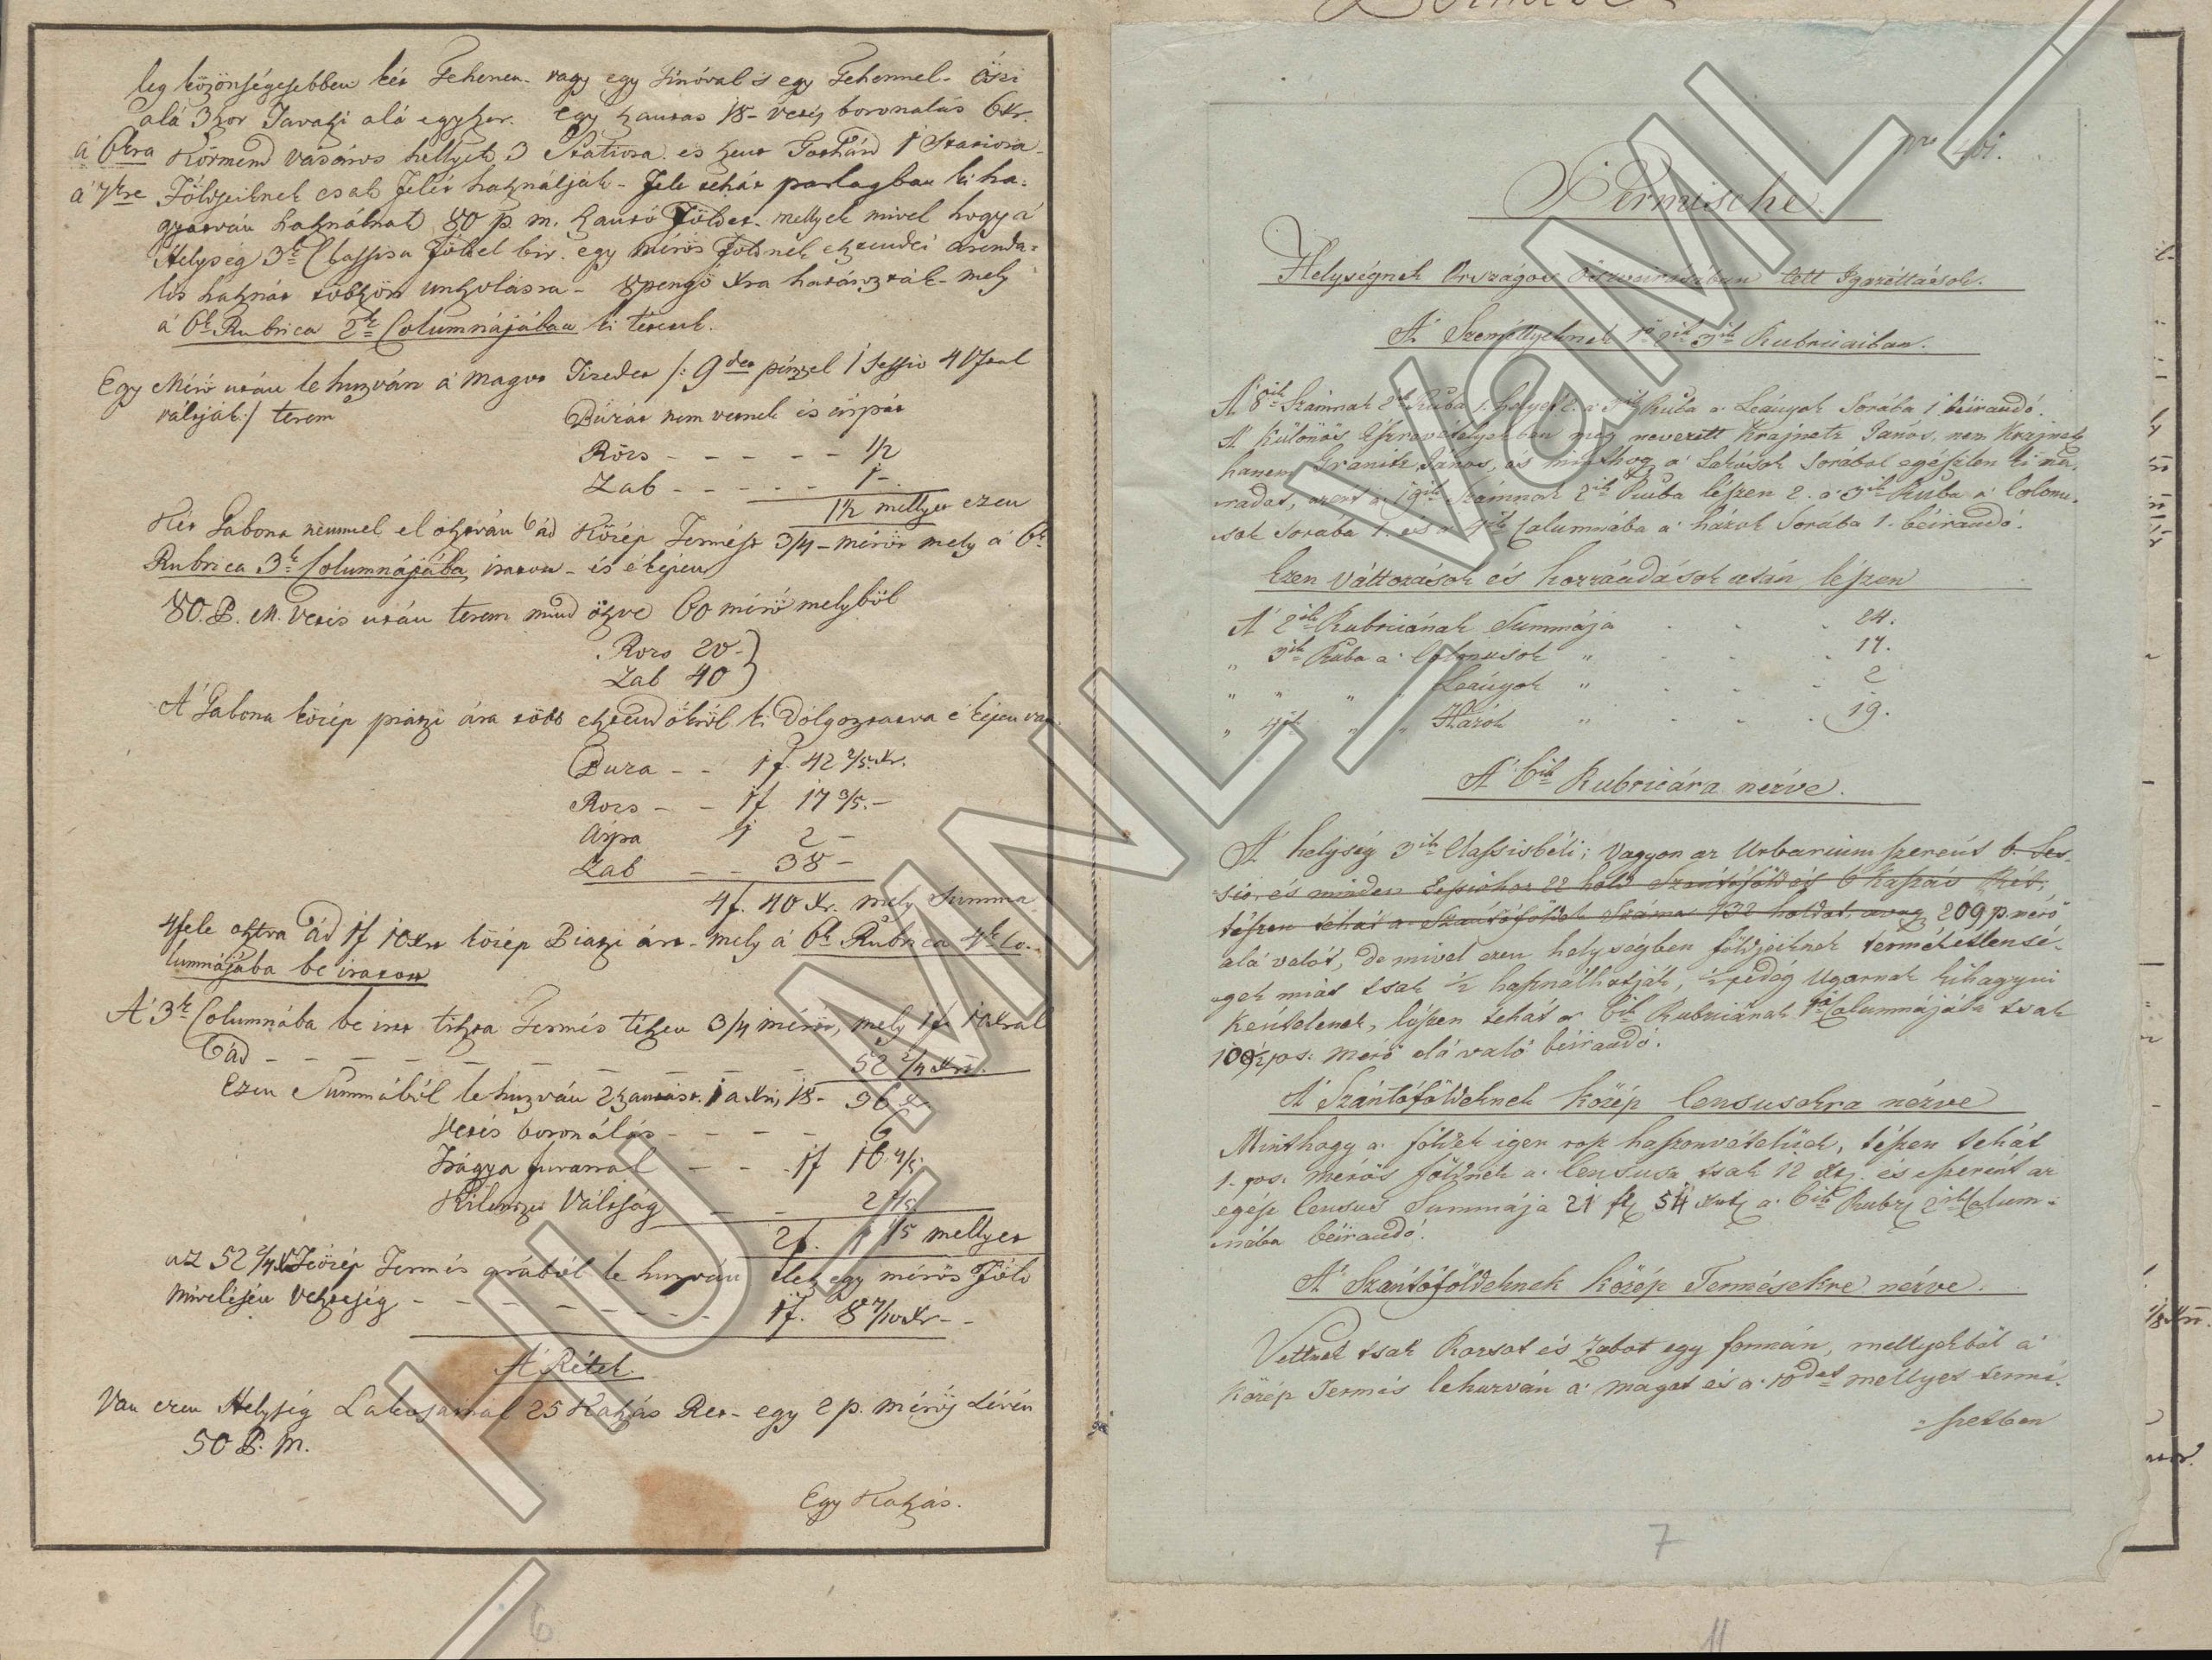 leg közönségesebben két Tehenen - vagy egy Tinóval is egy Tehennel - öszi
alá 3zor Tavaszi alá egyszer. Egy szántás 18 - vetés boronálás 6 Xr.
á 6kra Körmend vásáros hellyek 3 Statiora és Szent Gothárd 1 Statiora -
á 7kre Földjeiknek csak felét használják - fele tehát parlagban ki ha-
gyatván használnak 80 p. m. szántó Földet - mellyek mivel hogy á
Helység 3k Classisu Föltel bir. egy mérős Földnek esztendei árenda-
lis haszna
á 6k Rubrica 2k Columnájában ki tétetik.
Egy Mérő után le huzván á magvat Tizedet /: 9det pénzel 1 Sessio 4
váltják :/ terem Búzát nem vetnek és árpát
Rozs - - - - - 1/2
Zab - - - - - 1 -
1 1/2 mellyet ezen
Két Gabona nemmel el osztván ád Közép Termést 3/4 - mérőt mely á 6k
Rubrica 3k Columnájába iratott - és é képen
80. P. M. Vetés után terem mind özve 60 mérő melyböl
Rozs 20 -
Zab 40
A' Gabona közép piatzi ára több esztendőkröl ki dolgoztatva é képen van
Buza - - 1 f. 42 2/5 Xr.
Rozs - - 1 f 17 3/5 -
Árpa 1 2 -
Zab - - 38 -
4 f. 40 Xr. mely Summa
4fele osztva ád 1 f 10 Xrt közép Piatzi árt - mely á 6k Rubrica 4k Co-
lumnájába be iratott
A' 3k Columnába be irt tiszta Termés tészen 3/4 mérőt, mely 1 f. 10 Xral
ád - - - - - - - 52 2/4 Xrt.
Ezen Summából le huzván 2 szántást 1 a Xr, 18 - 36 Xr
Vetés boronálás - - - - 6
Trágya furarral - - - 1 f 16 4/5
Kilentzed Váltság - - 2 2/5
2 f. 1 1/5 mellyet
az 52 2/4 X Közép Termés árából le huzván lesz egy mérős Föld
Mivelésén Veszteség - - - - - - - 1 f. 8 7/10 Xr - -
A' Rétek.
Van ezen Helység Lakosainál 25 Kaszás Rét - egy 2 p. mérős Lévén
50 P. M.
Egy Kaszás.
6
Nro 40.
Permische.
Helységnek Országos Összveirásában tett Igazittások.
A' Személlyeknek 1ő 2ik 3ik Rubricaiban.
A' 8ik Számnak 2ik Ruba 1. helyet 2. a' 3ik Ruba a' Leányok Sorába 1 béirandó.
A' Külömös Észrevételyekben meg nevezett Krajnetz János, nem Krajnetz
hanem Granitz János, és minthogy a' Lakosok Sorábol egészlen ki ma-
radat, azért a' 19ik Számnak 2ik Ruba lészen 2. a' 3ik Ruba a' Colonu-
sok Sorába 1. és a' 4ik Calumnába a' házok Sorába 1. béirandó.
Ezen változások és hozzáadások után lészen
A' 2ik Rubricának Summája . . . 24.
„ 3ik Ruba a' Colonusok „ . . . 17.
„ „ „ „ Leányok „ . . . 2
„ 4ik „ „ Házok „ . . . 19.
A' 6ik Rubricára nézve.
A' helység 3ik Classisbéli; vagyon az Urbarium szerént 6. Ses-
sio, és minden Sessiohoz 22 hold Szántóföld és 6 kaszás Rét;
tészen tehát a' Szántóföldek Száma 132 holdat, avagy 209 p. mérő
alá valót, de mivel ezen helységben földjeiknek termékétlensé-
gek miát tsak 1/2 használhatják, 1/2 pedég Ugarnak kihagyni
Kéntelenek, lészen tehát a' 6ik Rubricának 1ső Calumnájába tsak
109 1/2 pos. mérő alá való béirandó.
A' Szántóföldeknek közép Censusokra nézve
Minthogy a' földek igen rosz haszonvételüek, tészen tehát
1. pos. mérős földnek a' Censusa tsak 12 Xr, és szerént az
egész Census Summája 21 f 54 a' 6ik Rubr 2ik Calum-
nába béirandó.
A' Szántóföldeknek közép Termésekre nézve.
Vettnek tsak Rozsot és Zabot egy formán, mellyekböl a'
közép Termés lehuzván a' magot és a' 10det mellyet termé-
szetben
7
11
HU MNL VaML